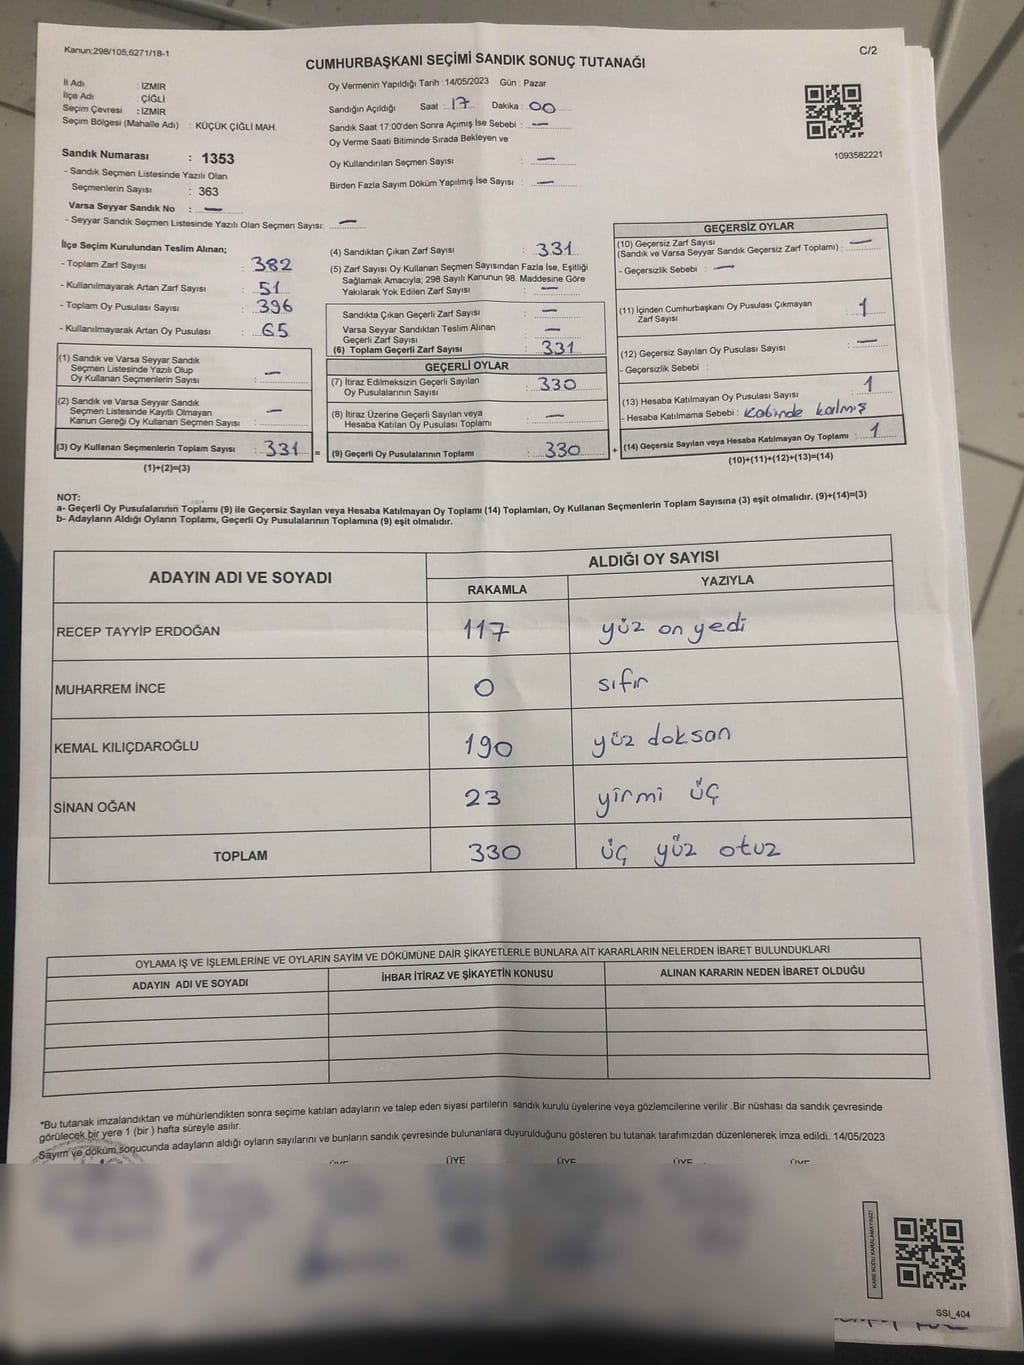 Kanun;298/105;6271/18-1
C/2
CUMHURBAŞKANI SEÇİMİ SANDIK SONUÇ TUTANAĞI
İl Adı : İZMİR
İlçe Adı : ÇİĞLİ
Seçim Çevresi : İZMİR
Seçim Bölgesi (Mahalle Adı) : KÜÇÜK ÇİĞLİ MAH.
Sandık Numarası : 1353
- Sandık Seçmen Listesinde Yazılı Olan
Seçmenlerin Sayısı : 363
Varsa Seyyar Sandık No : —
- Seyyar Sandık Seçmen Listesinde Yazılı Olan Seçmen Sayısı: —
Oy Vermenin Yapıldığı Tarih : 14/05/2023 Gün : Pazar
Sandığın Açıldığı Saat : 17 Dakika : 00
Sandık Saat 17:00'den Sonra Açımış İse Sebebi : —
Oy Verme Saati Bitiminde Sırada Bekleyen ve
Oy Kullandırılan Seçmen Sayısı : —
Birden Fazla Sayım Döküm Yapılmış İse Sayısı : —
1093582221
İlçe Seçim Kurulundan Teslim Alınan;
- Toplam Zarf Sayısı : 382
- Kullanılmayarak Artan Zarf Sayısı : 51
- Toplam Oy Pusulası Sayısı : 396
- Kullanılmayarak Artan Oy Pusulası : 65
(1) Sandık ve Varsa Seyyar Sandık
Seçmen Listesinde Yazılı Olup
Oy Kullanan Seçmenlerin Sayısı : —
(2) Sandık ve Varsa Seyyar Sandık
Seçmen Listesinde Kayıtlı Olmayan
Kanun Gereği Oy Kullanan Seçmen Sayısı : —
(3) Oy Kullanan Seçmenlerin Toplam Sayısı : 331 =
(1)+(2)=(3)
(4) Sandıktan Çıkan Zarf Sayısı : 331
(5) Zarf Sayısı Oy Kullanan Seçmen Sayısından Fazla İse, Eşitliği
Sağlamak Amacıyla; 298 Sayılı Kanunun 98. Maddesine Göre
Yakılarak Yok Edilen Zarf Sayısı : —
Sandıkta Çıkan Geçerli Zarf Sayısı : —
Varsa Seyyar Sandıktan Teslim Alınan
Geçerli Zarf Sayısı : —
(6) Toplam Geçerli Zarf Sayısı : 331
GEÇERLİ OYLAR
(7) İtiraz Edilmeksizin Geçerli Sayılan
Oy Pusulalarının Sayısı : 330
(8) İtiraz Üzerine Geçerli Sayılan veya
Hesaba Katılan Oy Pusulası Toplamı : —
(9) Geçerli Oy Pusulalarının Toplamı : 330 +
GEÇERSİZ OYLAR
(10) Geçersiz Zarf Sayısı
(Sandık ve Varsa Seyyar Sandık Geçersiz Zarf Toplamı) : —
- Geçersizlik Sebebi : —
(11) İçinden Cumhurbaşkanı Oy Pusulası Çıkmayan
Zarf Sayısı : 1
(12) Geçersiz Sayılan Oy Pusulası Sayısı : —
- Geçersizlik Sebebi :
(13) Hesaba Katılmayan Oy Pusulası Sayısı : 1
- Hesaba Katılmama Sebebi : Kabinde kalmış
(14) Geçersiz Sayılan veya Hesaba Katılmayan Oy Toplamı : 1
(10)+(11)+(12)+(13)=(14)
NOT:
a- Geçerli Oy Pusulalarının Toplamı (9) ile Geçersiz Sayılan veya Hesaba Katılmayan Oy Toplamı (14) Toplamları, Oy Kullanan Seçmenlerin Toplam Sayısına (3) eşit olmalıdır. (9)+(14)=(3)
b- Adayların Aldığı Oyların Toplamı, Geçerli Oy Pusulalarının Toplamına (9) eşit olmalıdır.
ADAYIN ADI VE SOYADI
ALDIĞI OY SAYISI
RAKAMLA YAZIYLA
RECEP TAYYİP ERDOĞAN 117 yüz on yedi
MUHARREM İNCE 0 sıfır
KEMAL KILIÇDAROĞLU 190 yüz doksan
SİNAN OĞAN 23 yirmi üç
TOPLAM 330 üç yüz otuz
OYLAMA İŞ VE İŞLEMLERİNE VE OYLARIN SAYIM VE DÖKÜMÜNE DAİR ŞİKAYETLERLE BUNLARA AİT KARARLARIN NELERDEN İBARET BULUNDUKLARI
ADAYIN ADI VE SOYADI İHBAR İTİRAZ VE ŞİKAYETİN KONUSU ALINAN KARARIN NEDEN İBARET OLDUĞU
*Bu tutanak imzalandıktan ve mühürlendikten sonra seçime katılan adayların ve talep eden siyasi partilerin sandık kurulu üyelerine veya gözlemcilerine verilir .Bir nüshası da sandık çevresinde
görülecek bir yere 1 (bir ) hafta süreyle asılır.
Sayım ve döküm sonucunda adayların aldığı oyların sayılarını ve bunların sandık çevresinde bulunanlara duyurulduğunu gösteren bu tutanak tarafımızdan düzenlenerek imza edildi. 14/05/2023
ÜYE ÜYE ÜYE ÜYE ÜYE
KARE KODU KARALAMAYINIZ!
SSI_404